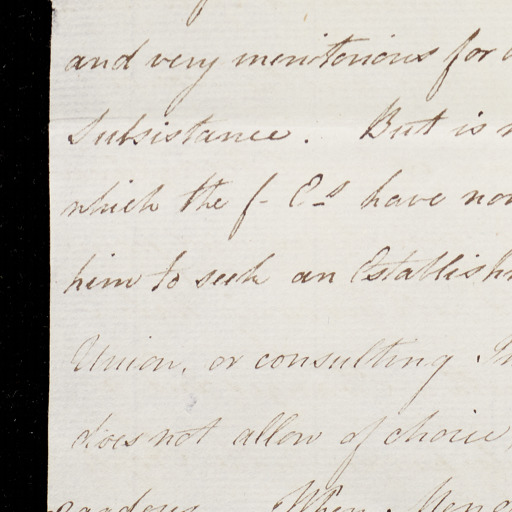 and very meritorious for
Subsistance. But is
which the f- E-s have no
him to seek an Establish
Union, or consulting
does not allow of choice,
When